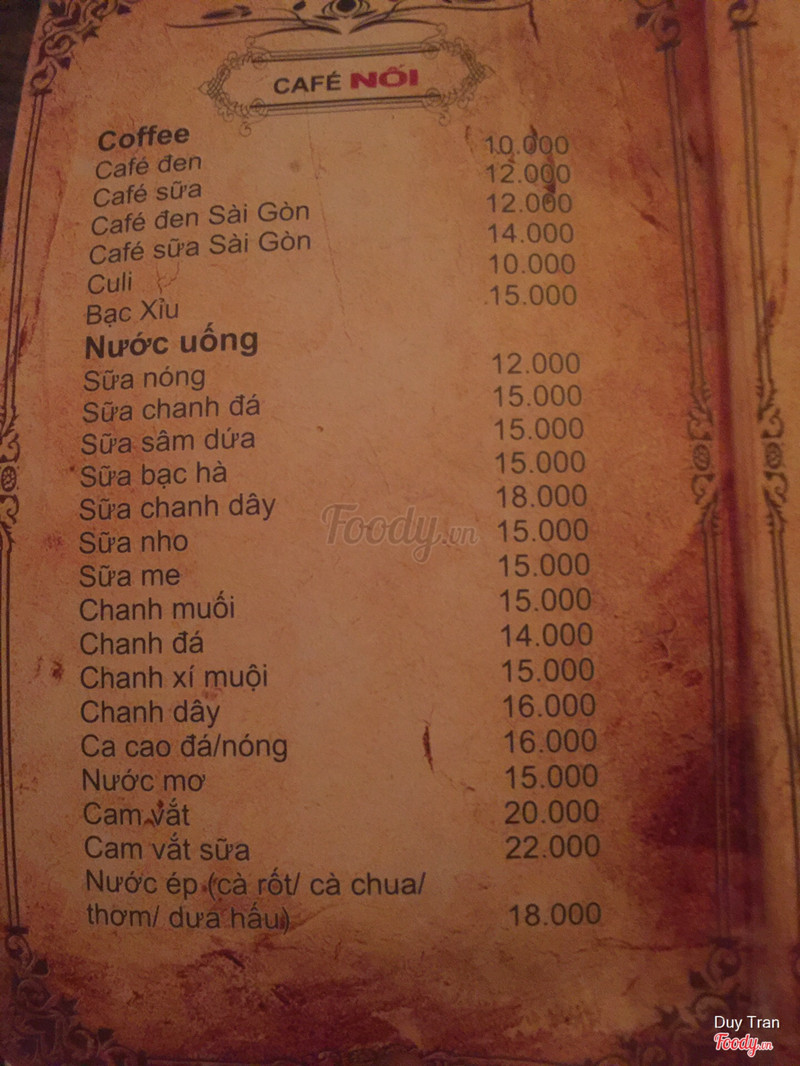 CAFÉ NỐI
Coffee
Café đen 10.000
Café sữa 12.000
Café đen Sài Gòn 12.000
Café sữa Sài Gòn 14.000
Culi 10.000
Bạc Xỉu 15.000
Nước uống
Sữa nóng 12.000
Sữa chanh đá 15.000
Sữa sâm dứa 15.000
Sữa bạc hà 15.000
Sữa chanh dây 18.000
Sữa nho 15.000
Sữa me 15.000
Chanh muối 15.000
Chanh đá 14.000
Chanh xí muội 15.000
Chanh dây 16.000
Ca cao đá/nóng 16.000
Nước mơ 15.000
Cam vắt 20.000
Cam vắt sữa 22.000
Nước ép (cà rốt/ cà chua/
thơm/ dưa hấu) 18.000
Foody.vn
Duy Tran
Foody.vn